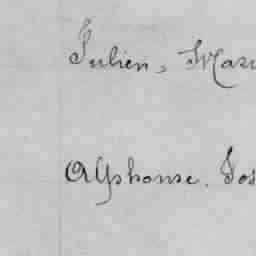 Julien, Mari
Alphonse. Jos